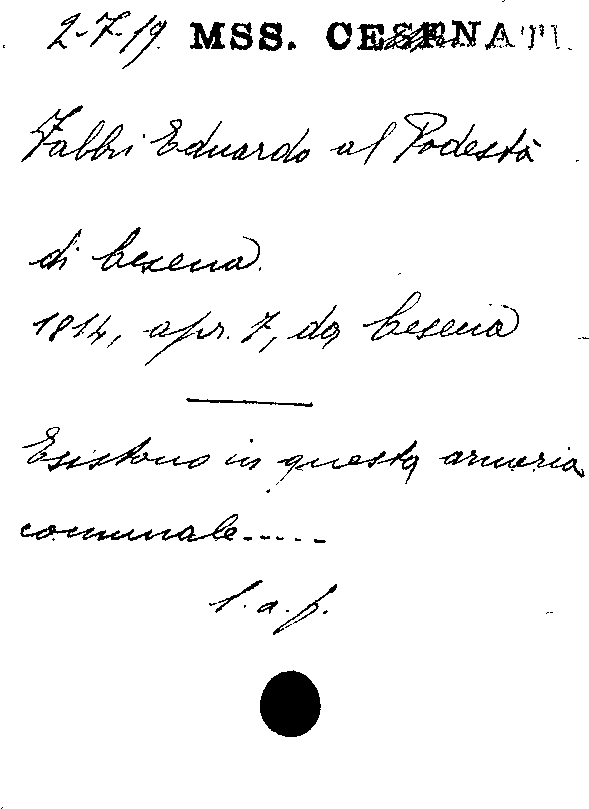 2-7-19 MSS. CESENA
Fabbri Eduardo al Podestà
di Cesena.
1814, apr. 7, da Cesena
Esistono in questa armeria
comunale.....
l. a. f.